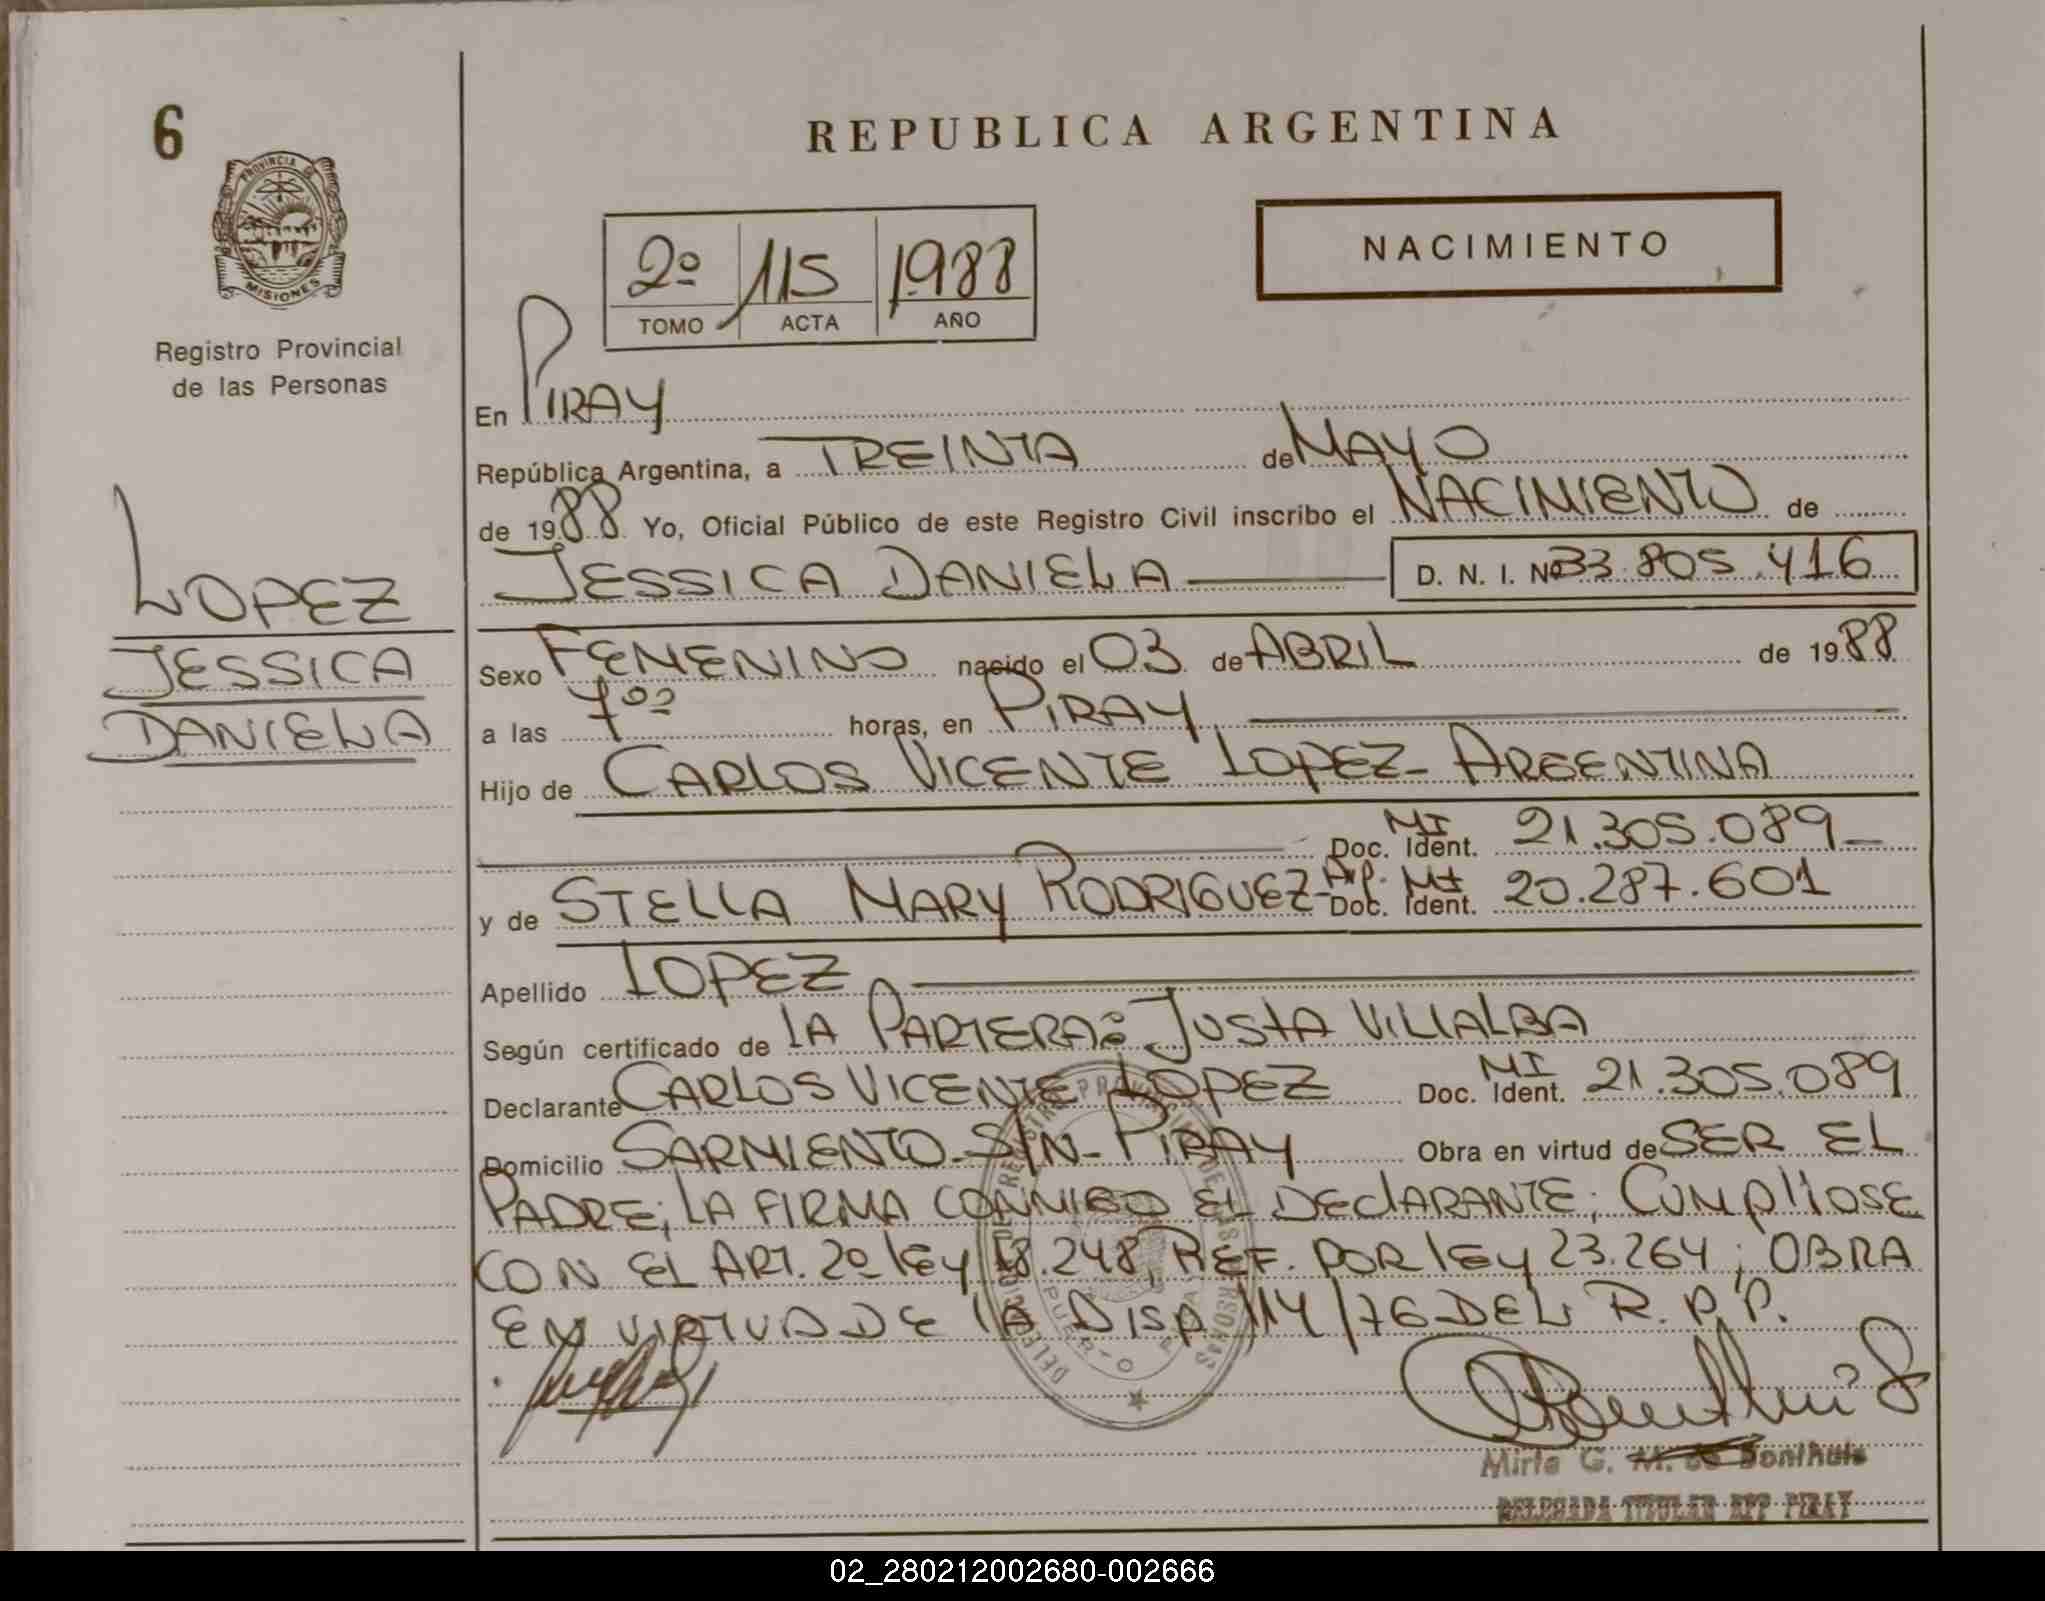 6
PROVINCIA DE
MISIONES
Registro Provincial
de las Personas
LOPEZ
JESSICA
DANIELA
REPUBLICA ARGENTINA
2º 115 1988
TOMO ACTA AÑO
NACIMIENTO
En PIRAY
República Argentina, a TREINTA de MAYO
de 1988 Yo, Oficial Público de este Registro Civil inscribo el NACIMIENTO de
JESSICA DANIELA D. N. I. Nº 33.805.416
Sexo FEMENINO nacido el 03 de ABRIL de 1988
a las 7ºº horas, en PIRAY
Hijo de CARLOS VICENTE LOPEZ - ARGENTINA
Doc. Ident. MI 21.305.089
y de STELLA MARY RODRIGUEZ - Arg. Doc. Ident. MI 20.287.601
Apellido LOPEZ
Según certificado de LA PARTERA: JUSTA VILLALBA
Declarante CARLOS VICENTE LOPEZ Doc. Ident. MI 21.305.089
Domicilio SARMIENTO - S/N - PIRAY Obra en virtud de SER EL
PADRE; LA FIRMA CONMIGO EL DEClARANTE; CUMPlIOSE
CON EL ART. 2º lEy 18.248, REF. POR lEy 23.264; OBRA
EN VIRTUD DE lA DISP. 114/76 DEL R.P.P.
Mirta G. M. de Bonthuis
DELEGADA TITULAR RPP PIRAY
02_280212002680-002666